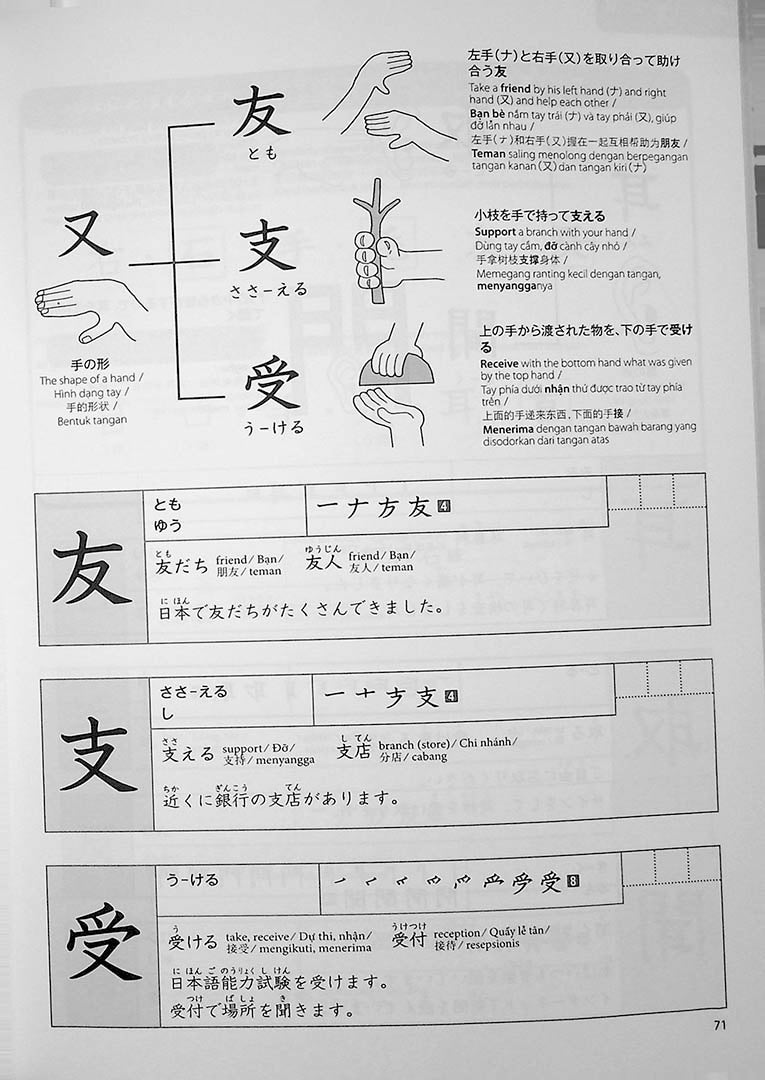 左手(ナ)と右手(又)を取り合って助け
合う友
Take a friend by his left hand (ナ) and right
hand (又) and help each other /
Bạn bè nắm tay trái (ナ) và tay phải (又), giúp
đỡ lẫn nhau /
左手(ナ)和右手(又)握在一起互相帮助为朋友 /
Teman saling menolong dengan berpegangan
tangan kanan (又) dan tangan kiri (ナ)
友
とも
又
手の形
The shape of a hand /
Hình dạng tay /
手的形状 /
Bentuk tangan
支
ささ-える
小枝を手で持って支える
Support a branch with your hand /
Dùng tay cầm, đỡ cành cây nhỏ /
手拿树枝支撑身体 /
Memegang ranting kecil dengan tangan,
menyangganya
受
う-ける
上の手から渡された物を、下の手で受け
る
Receive with the bottom hand what was given
by the top hand /
Tay phía dưới nhận thứ được trao từ tay phía
trên /
上面的手递来东西,下面的手接 /
Menerima dengan tangan bawah barang yang
disodorkan dari tangan atas
友
とも
ゆう
一ナ方友4
とも ゆうじん
友だち friend/ Bạn/ 友人 friend/ Bạn/
朋友/ teman 友人/ teman
に ほん
日本で友だちがたくさんできました。
支
ささ-える
し
一十ナ支4
ささ し てん
支える support/ Đỡ/ 支店 branch (store)/ Chi nhánh/
支持/ menyangga 分店/ cabang
ちか ぎんこう てん
近くに銀行の支店があります。
受
う-ける
受8
う うけつけ
受ける take, receive/ Dự thi, nhận/ 受付 reception/ Quầy lễ tân/
接受/ mengikuti, menerima 接待/ resepsionis
に ほん ご のうりょく し けん
日本語能力試験を受けます。
つけ ば しょ き
受付で場所を聞きます。
71